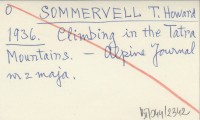 O SOMMERVELL T. Howard
1936. Climbing in the Tatra
Mountains. — Alpine Journal
nr 2 maja.
2342